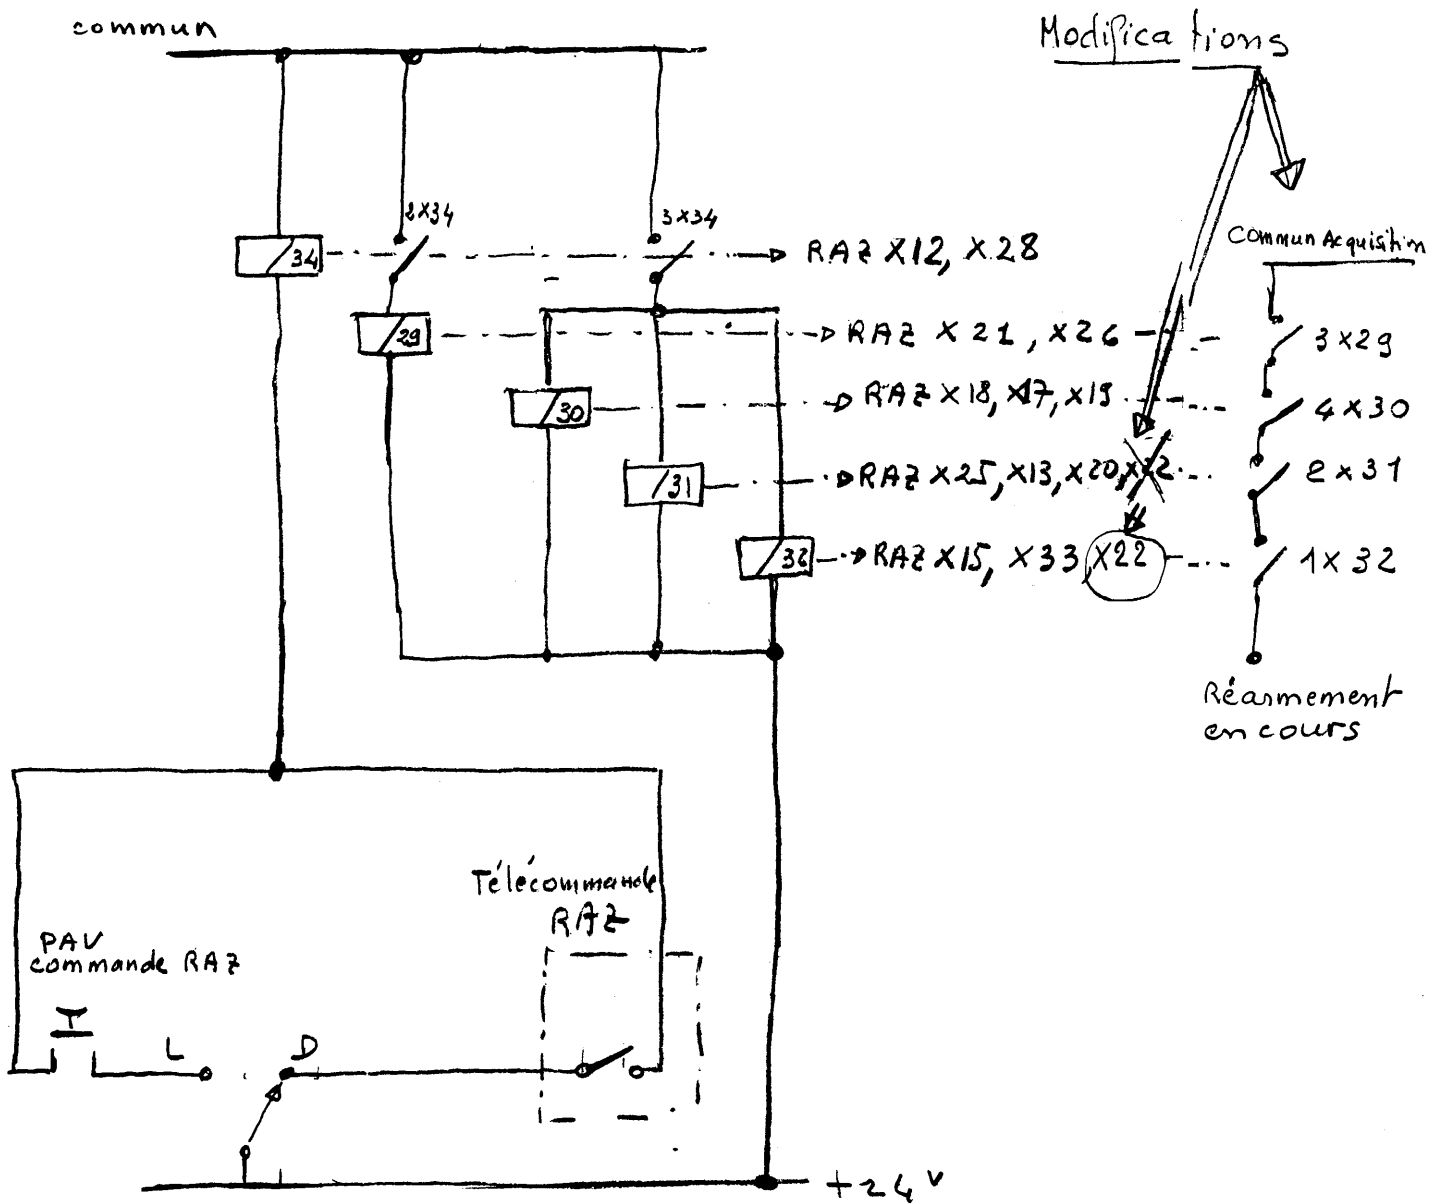 commun
Modifications
2X34
3X34
34
RAZ X12, X28
Commun Acquisition
29
RAZ X21, X26
3X29
30
RAZ X18, X17, X19
4X30
31
RAZ X25, X13, X20, X22
2X31
32
RAZ X15, X33, X22
1X32
Réarmement
en cours
Télécommande
RAZ
PAV
commande RAZ
L
D
+24V